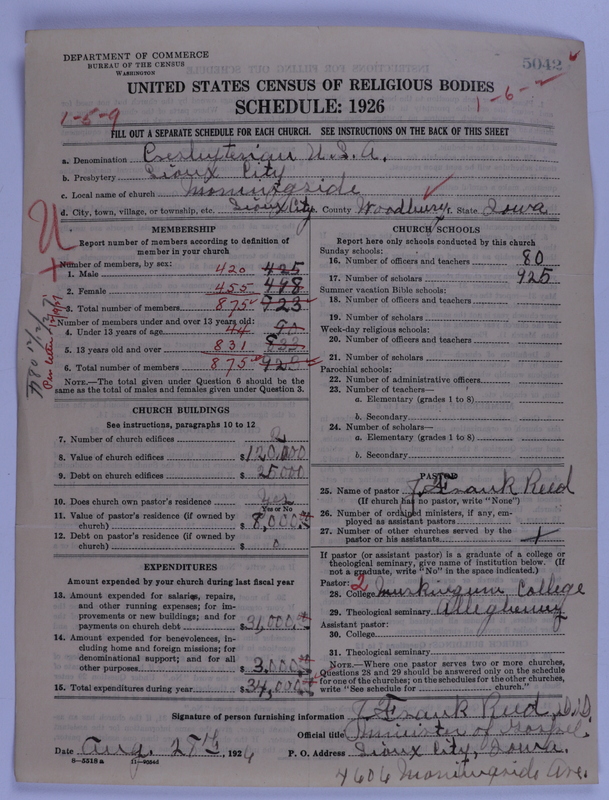 DEPARTMENT OF COMMERCE
BUREAU OF THE CENSUS
WASHINGTON
5042
UNITED STATES CENSUS OF RELIGIOUS BODIES
SCHEDULE: 1926
1-5-9
1-6-2
FILL OUT A SEPARATE SCHEDULE FOR EACH CHURCH. SEE INSTRUCTIONS ON THE BACK OF THIS SHEET
a. Denomination Presbyterian U.S.A.
b. Presbytery Sioux City
c. Local name of church Morningside
d. City, town, village, or township, etc. Sioux City e. County Woodbury f. State Iowa
MEMBERSHIP
Report number of members according to definition of
member in your church
Number of members, by sex:
1. Male 420 425
2. Female 455 498
3. Total number of members 875 923
Number of members under and over 13 years old:
4. Under 13 years of age 44 90
5. 13 years old and over 831 833
6. Total number of members 875 923
NOTE.—The total given under Question 6 should be
same as the total of males and females given under Question 3.
CHURCH BUILDINGS
See instructions, paragraphs 10 to 12
7. Number of church edifices 2
8. Value of church edifices $120,000
9. Debt on church edifices $25000
10. Does church own pastor's residence Yes
Yes or No
11. Value of pastor's residence (if owned by
church) $8,000
12. Debt on pastor's residence (if owned by
church) $0
EXPENDITURES
Amount expended by your church during last fiscal year
13. Amount expended for salaries, repairs,
and other running expenses; for im-
provements or new buildings; and for
payments on church debt $31,000
14. Amount expended for benevolences, in-
cluding home and foreign missions; for
denominational support; and for all
other purposes $3,000
15. Total expenditures during year $34,000
CHURCH SCHOOLS
Report here only schools conducted by this church
Sunday schools:
16. Number of officers and teachers 80
17. Number of scholars 925
Summer vacation Bible schools:
18. Number of officers and teachers
19. Number of scholars
Week-day religious schools:
20. Number of officers and teachers
21. Number of scholars
Parochial schools:
22. Number of administrative officers
23. Number of teachers—
a. Elementary (grades 1 to 8)
b. Secondary
24. Number of scholars—
a. Elementary (grades 1 to 8)
b. Secondary
PASTOR
25. Name of pastor J. Frank Reed
(If church has no pastor, write "None")
26. Number of ordained ministers, if any, em-
ployed as assistant pastors
27. Number of other churches served by the
pastor or his assistants
If pastor (or assistant pastor) is a graduate of a college or
theological seminary, give name of institution below. (If
not a graduate, write "No" in the space indicated.)
Pastor: 2
28. College Muskingum College
29. Theological seminary Allegheny
Assistant pastor:
30. College
31. Theological seminary
NOTE.—Where one pastor serves two or more churches,
Questions 28 and 29 should be answered only on the schedule
for one of the churches; on the schedules for the other churches,
write "See schedule for church."
Signature of person furnishing information J. Frank Reed D.D.
Official title Minister of Gospel
Date Aug. 27th, 1926 P. O. Address Sioux City, Iowa.
8—5518a 11—9054d
4606 Morningside Ave.